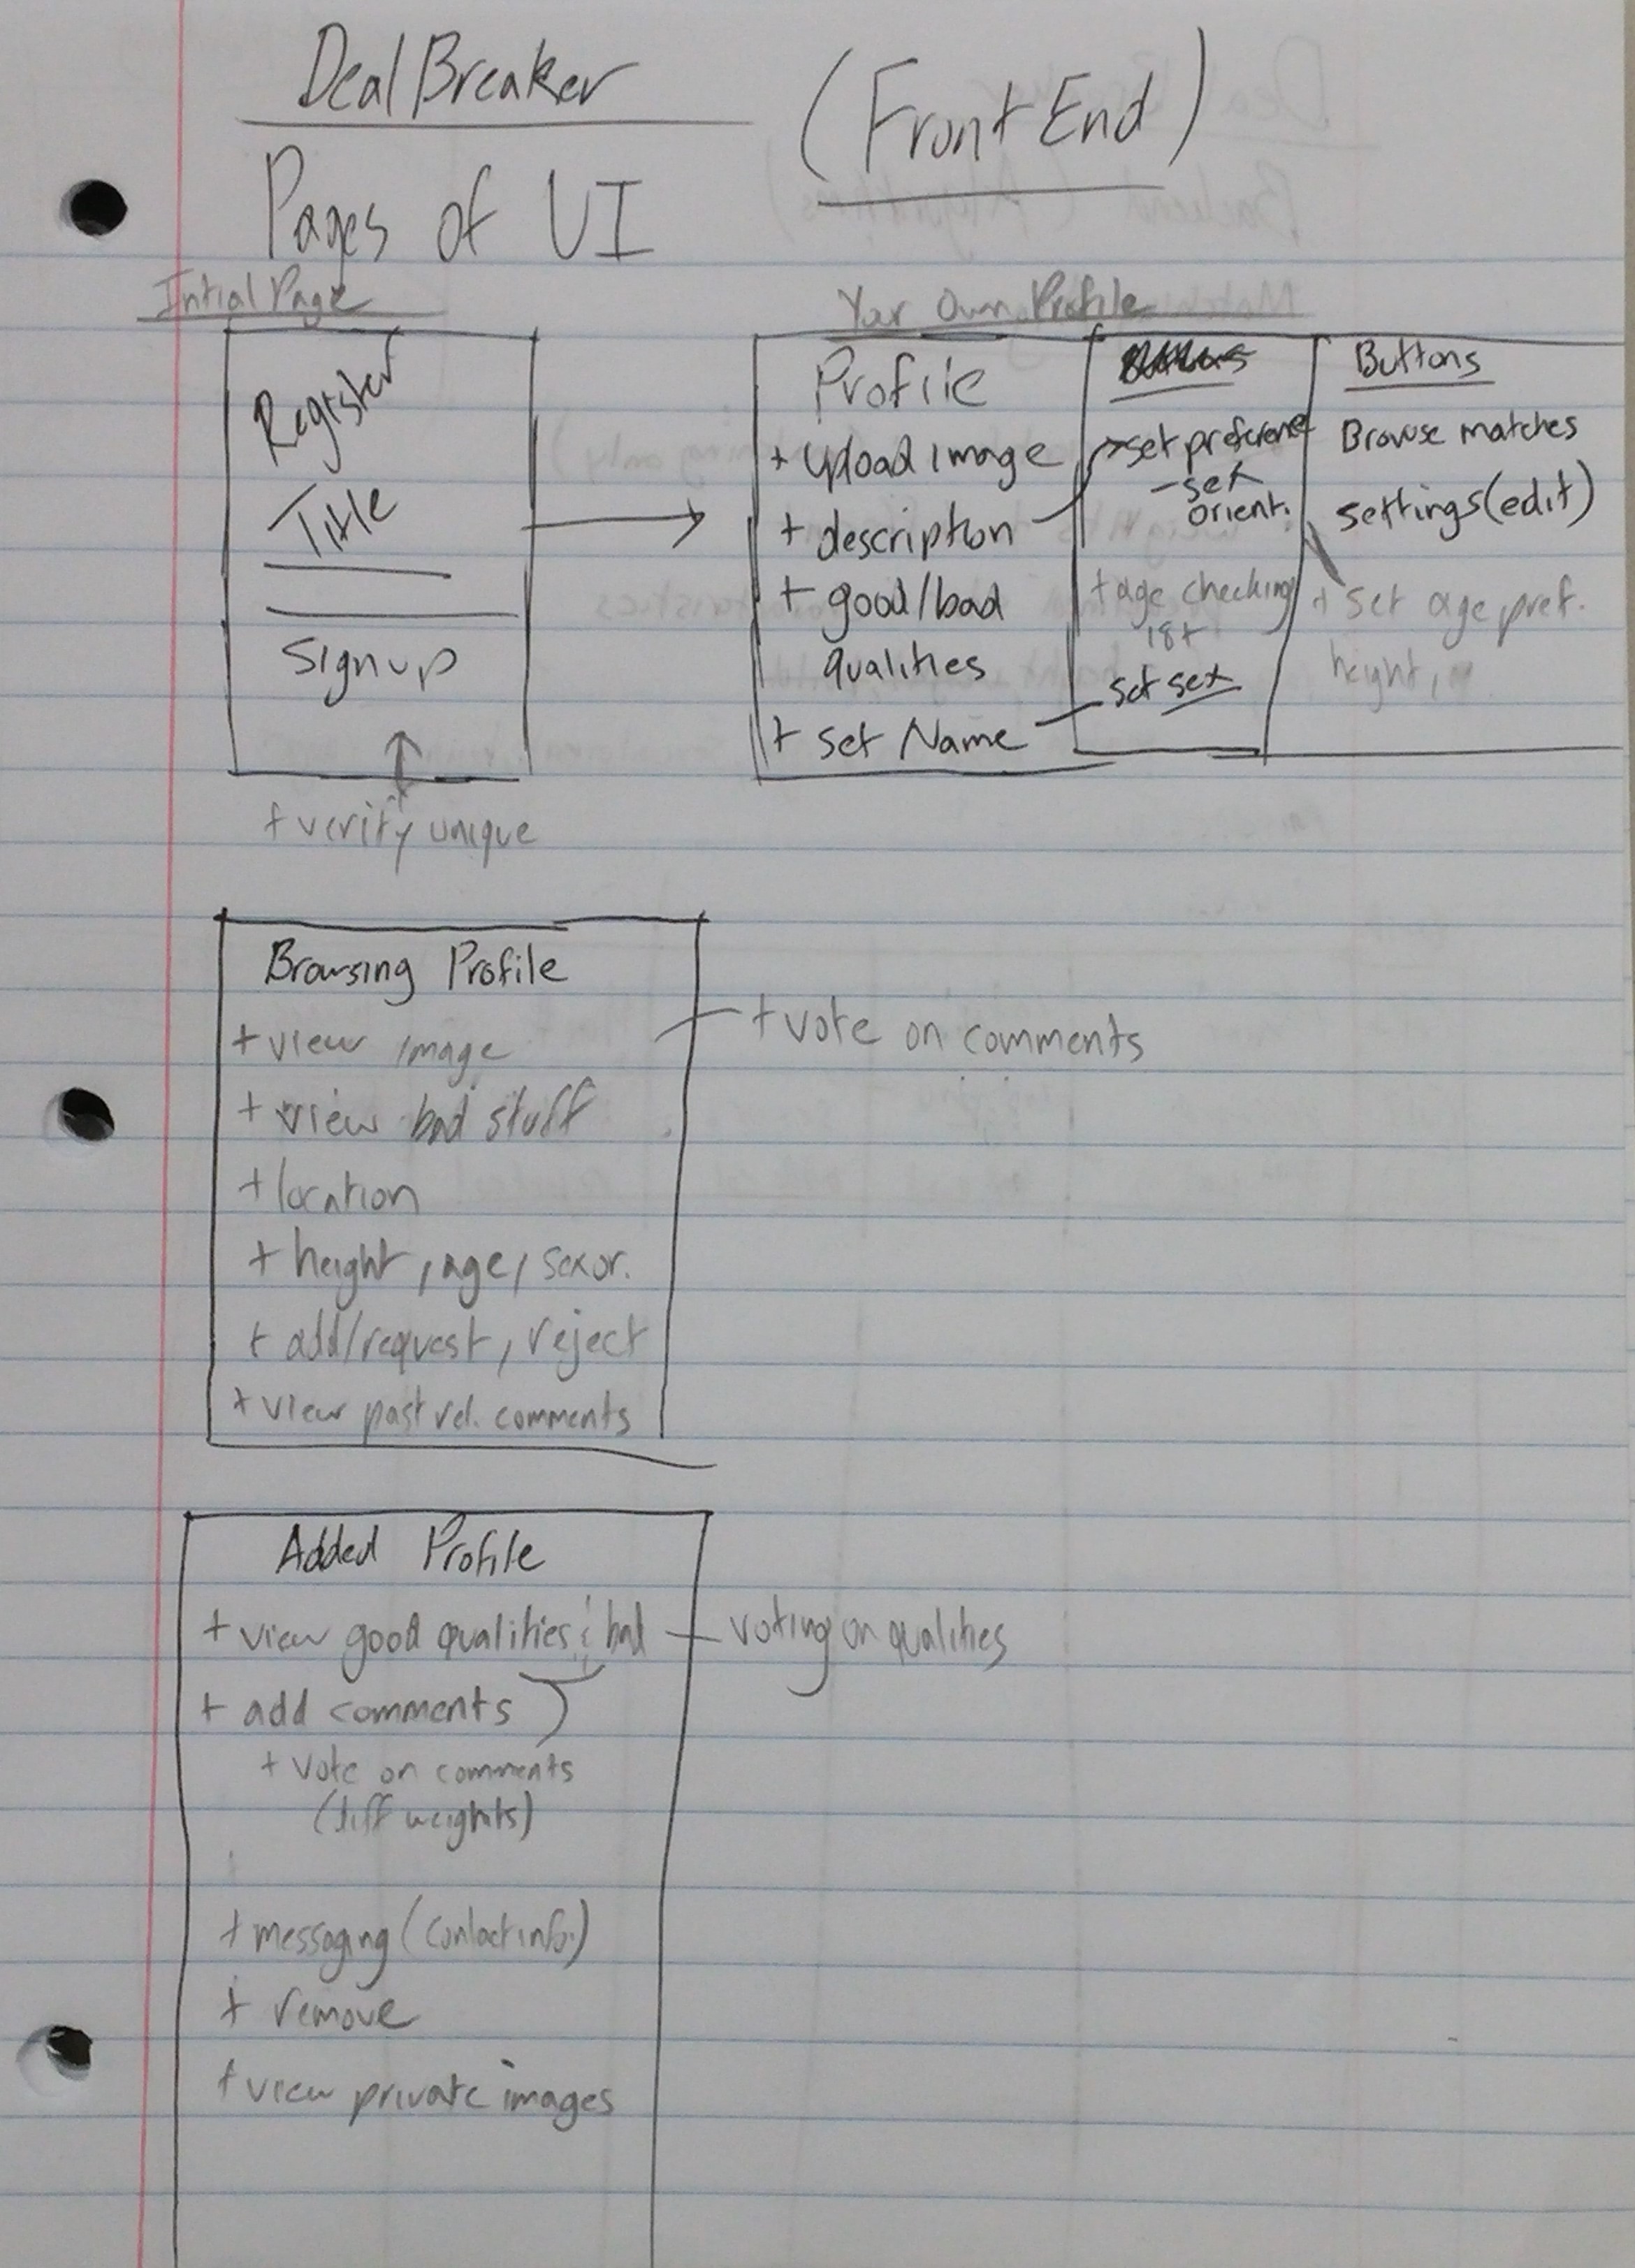 DealBreaker
(Front End)
Pages of UI
Intial Page
Register
Title
Signup
+ verify unique
Your Own Profile
Profile
+ upload image
+ description
+ good/bad
qualities
+ set Name
set preference
- set
orient.
+ age checking
18+
set sex
Buttons
Browse matches
settings (edit)
+ set age pref.
height,
Browsing Profile
+ view image
+ vote on comments
+ view bad stuff
+ location
+ height, age, sexor.
+ add/request, reject
+ view past rel. comments
Added Profile
+ view good qualities & bad
voting on qualities
+ add comments
+ vote on comments
(diff weights)
+ messaging (contact info.)
+ remove
+ view private images